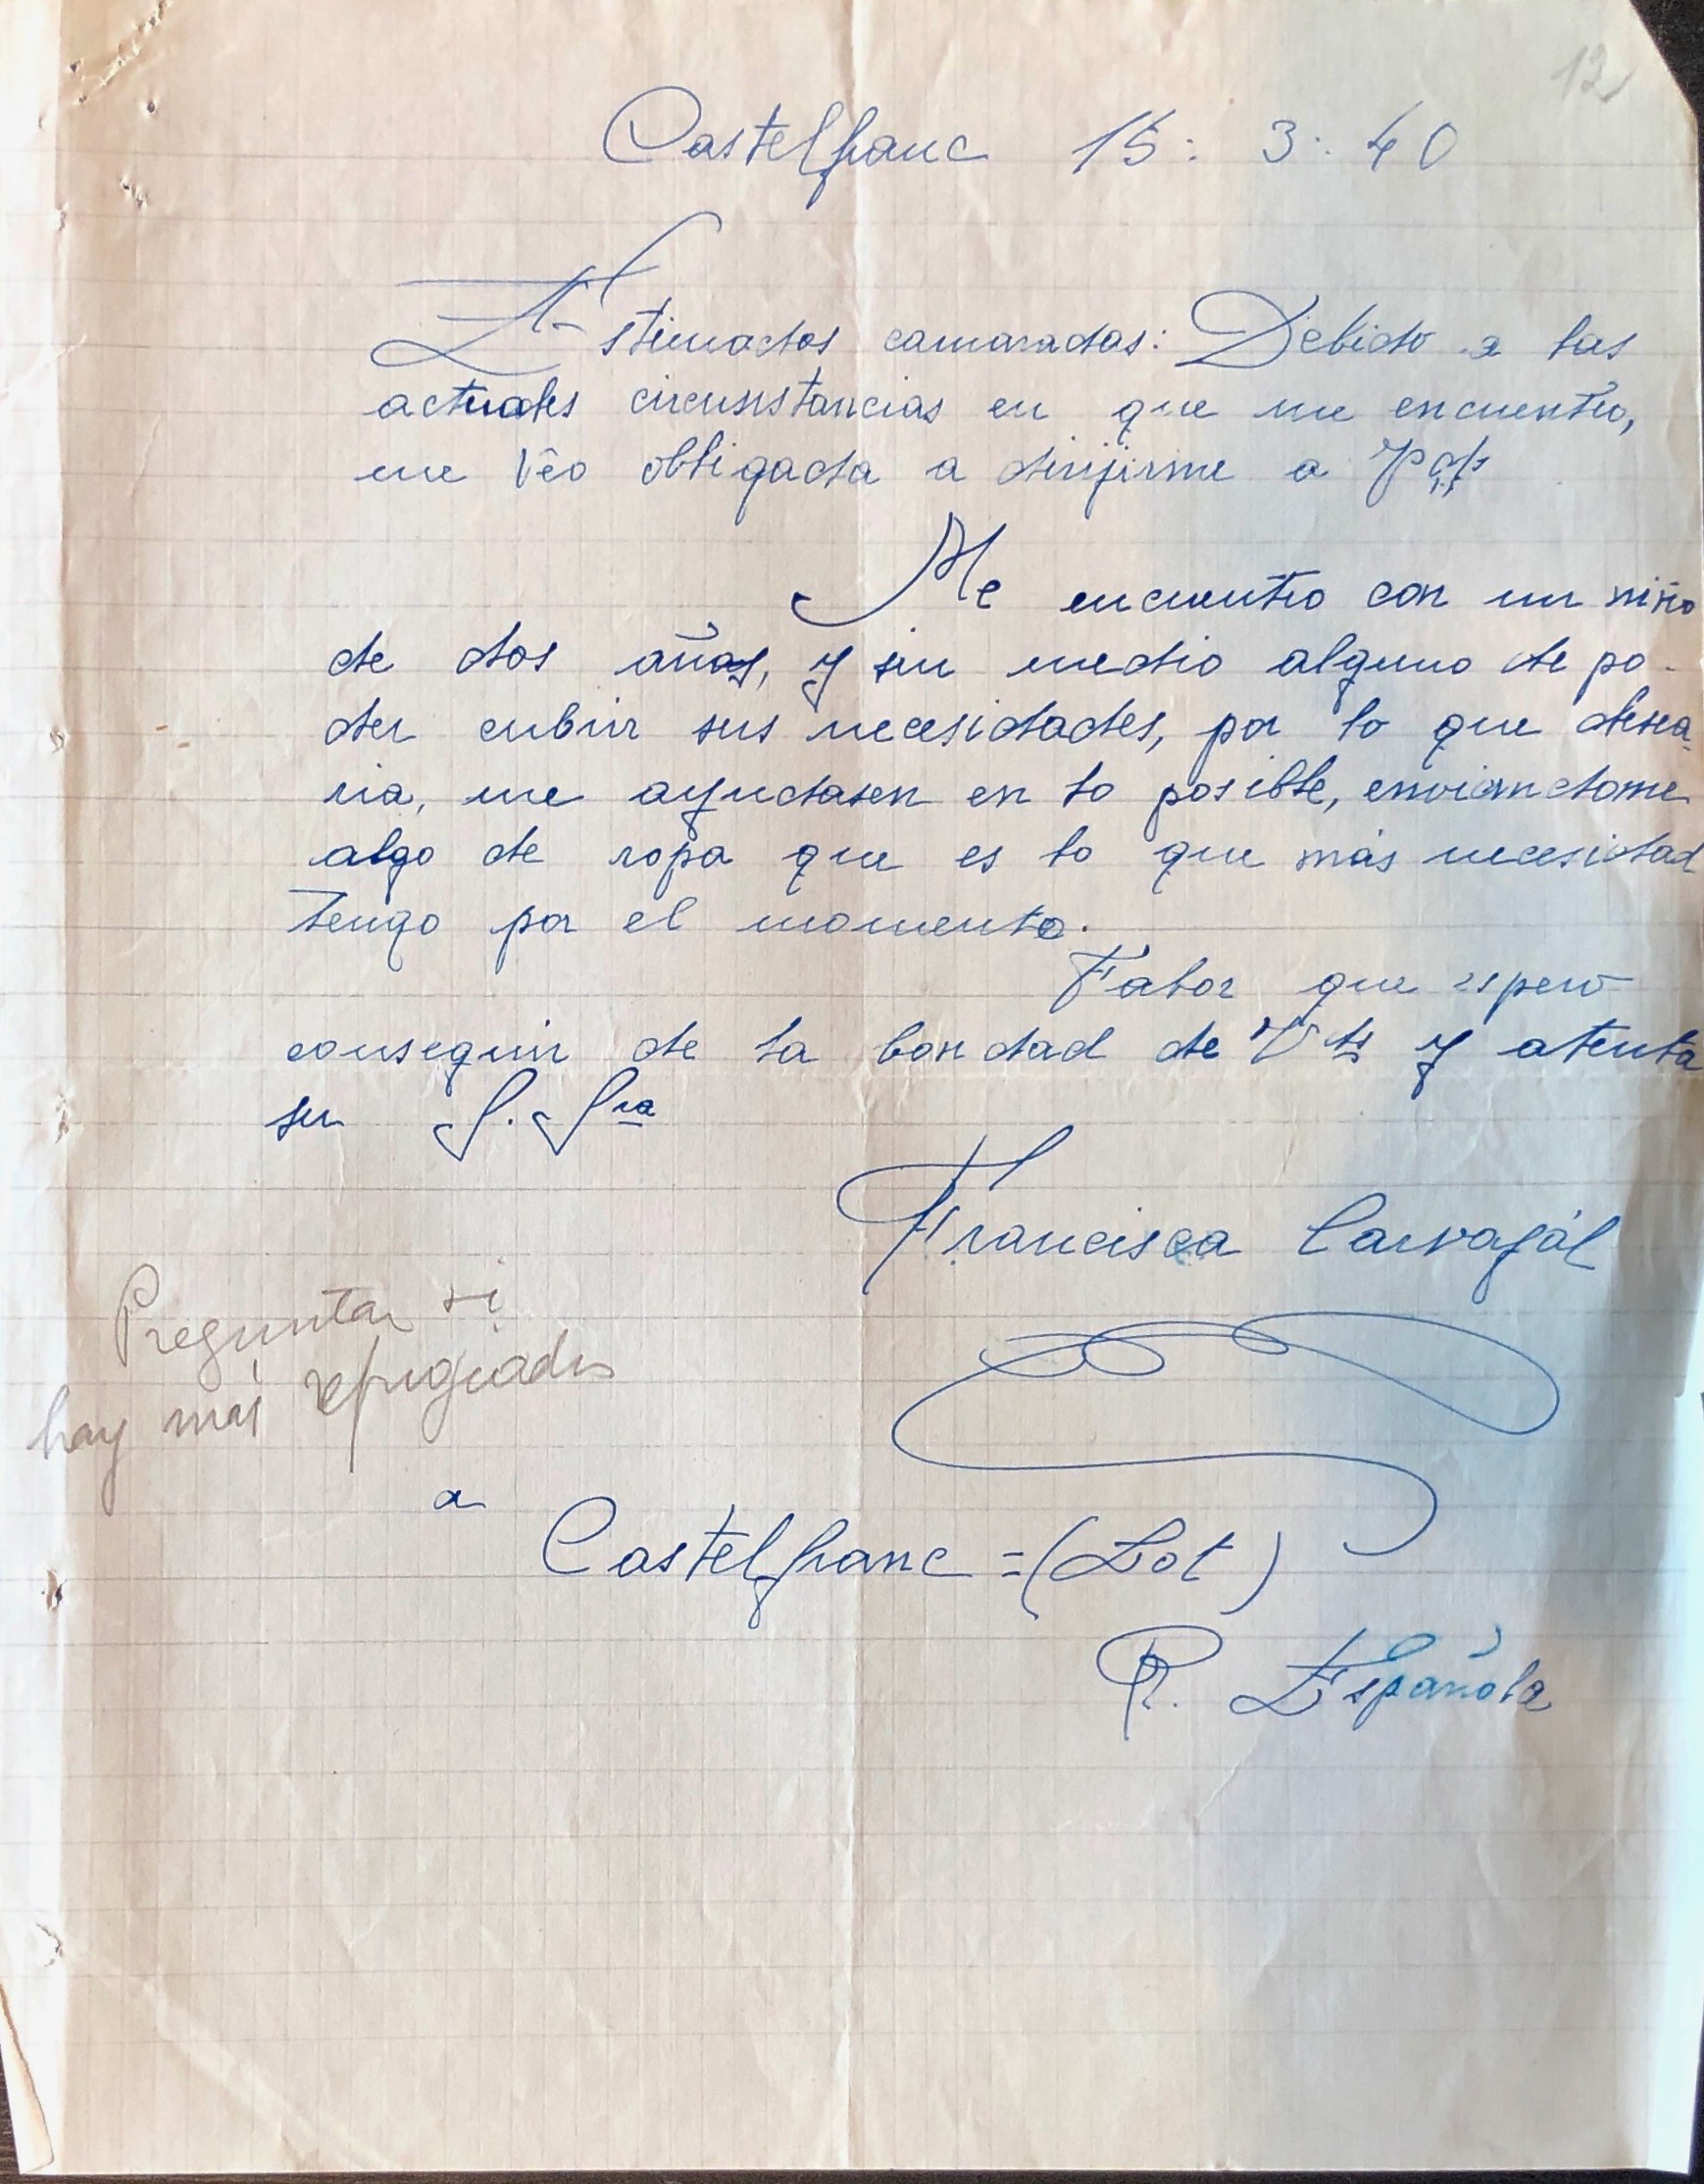 12
Castelfranc 15: 3: 40
Estimados camaradas: Debido a las
actuales circunstancias en que me encuentro,
me véo obligada a dirijirme a Vds
Me encuentro con un niño
de dos años, y sin medio alguno de po-
der cubrir sus necesidades, por lo que desea-
ria, me ayudasen en lo posible, enviandome
algo de ropa que es lo que más necesidad
tengo por el momento.
Fabor que espero
conseguir de la bondad de Vds y atenta
su S. Sra
Francisca Carvajál
Preguntar si
hay más refugiados
a
Castelfranc =(Lot)
R. Española